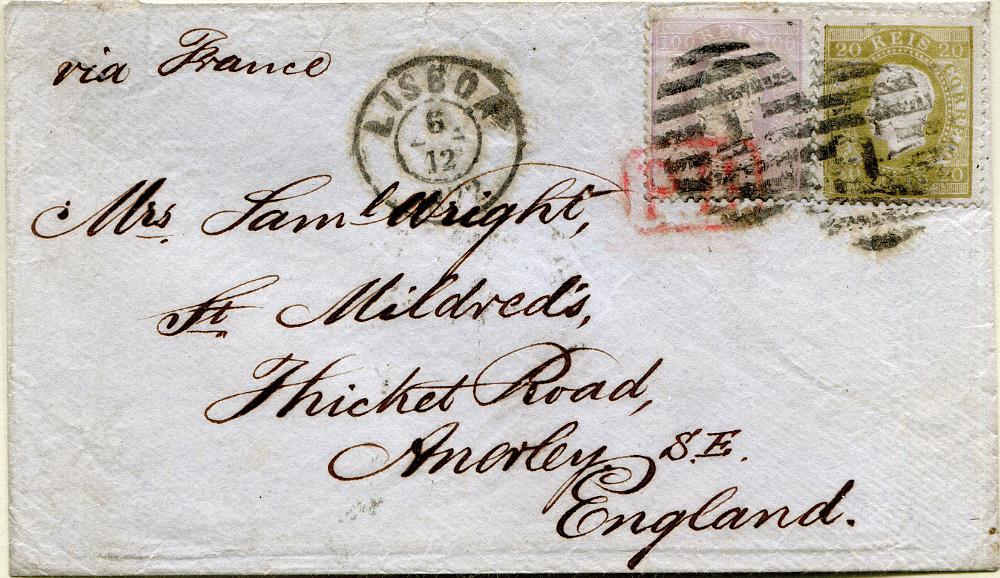 via France
LISBOA
6
12
100 REIS 100
20 REIS 20
CORREIO
20 20
P.D.
Mrs. Saml Wright,
St Mildred's,
Thicket Road,
Anerley S.E.
England.